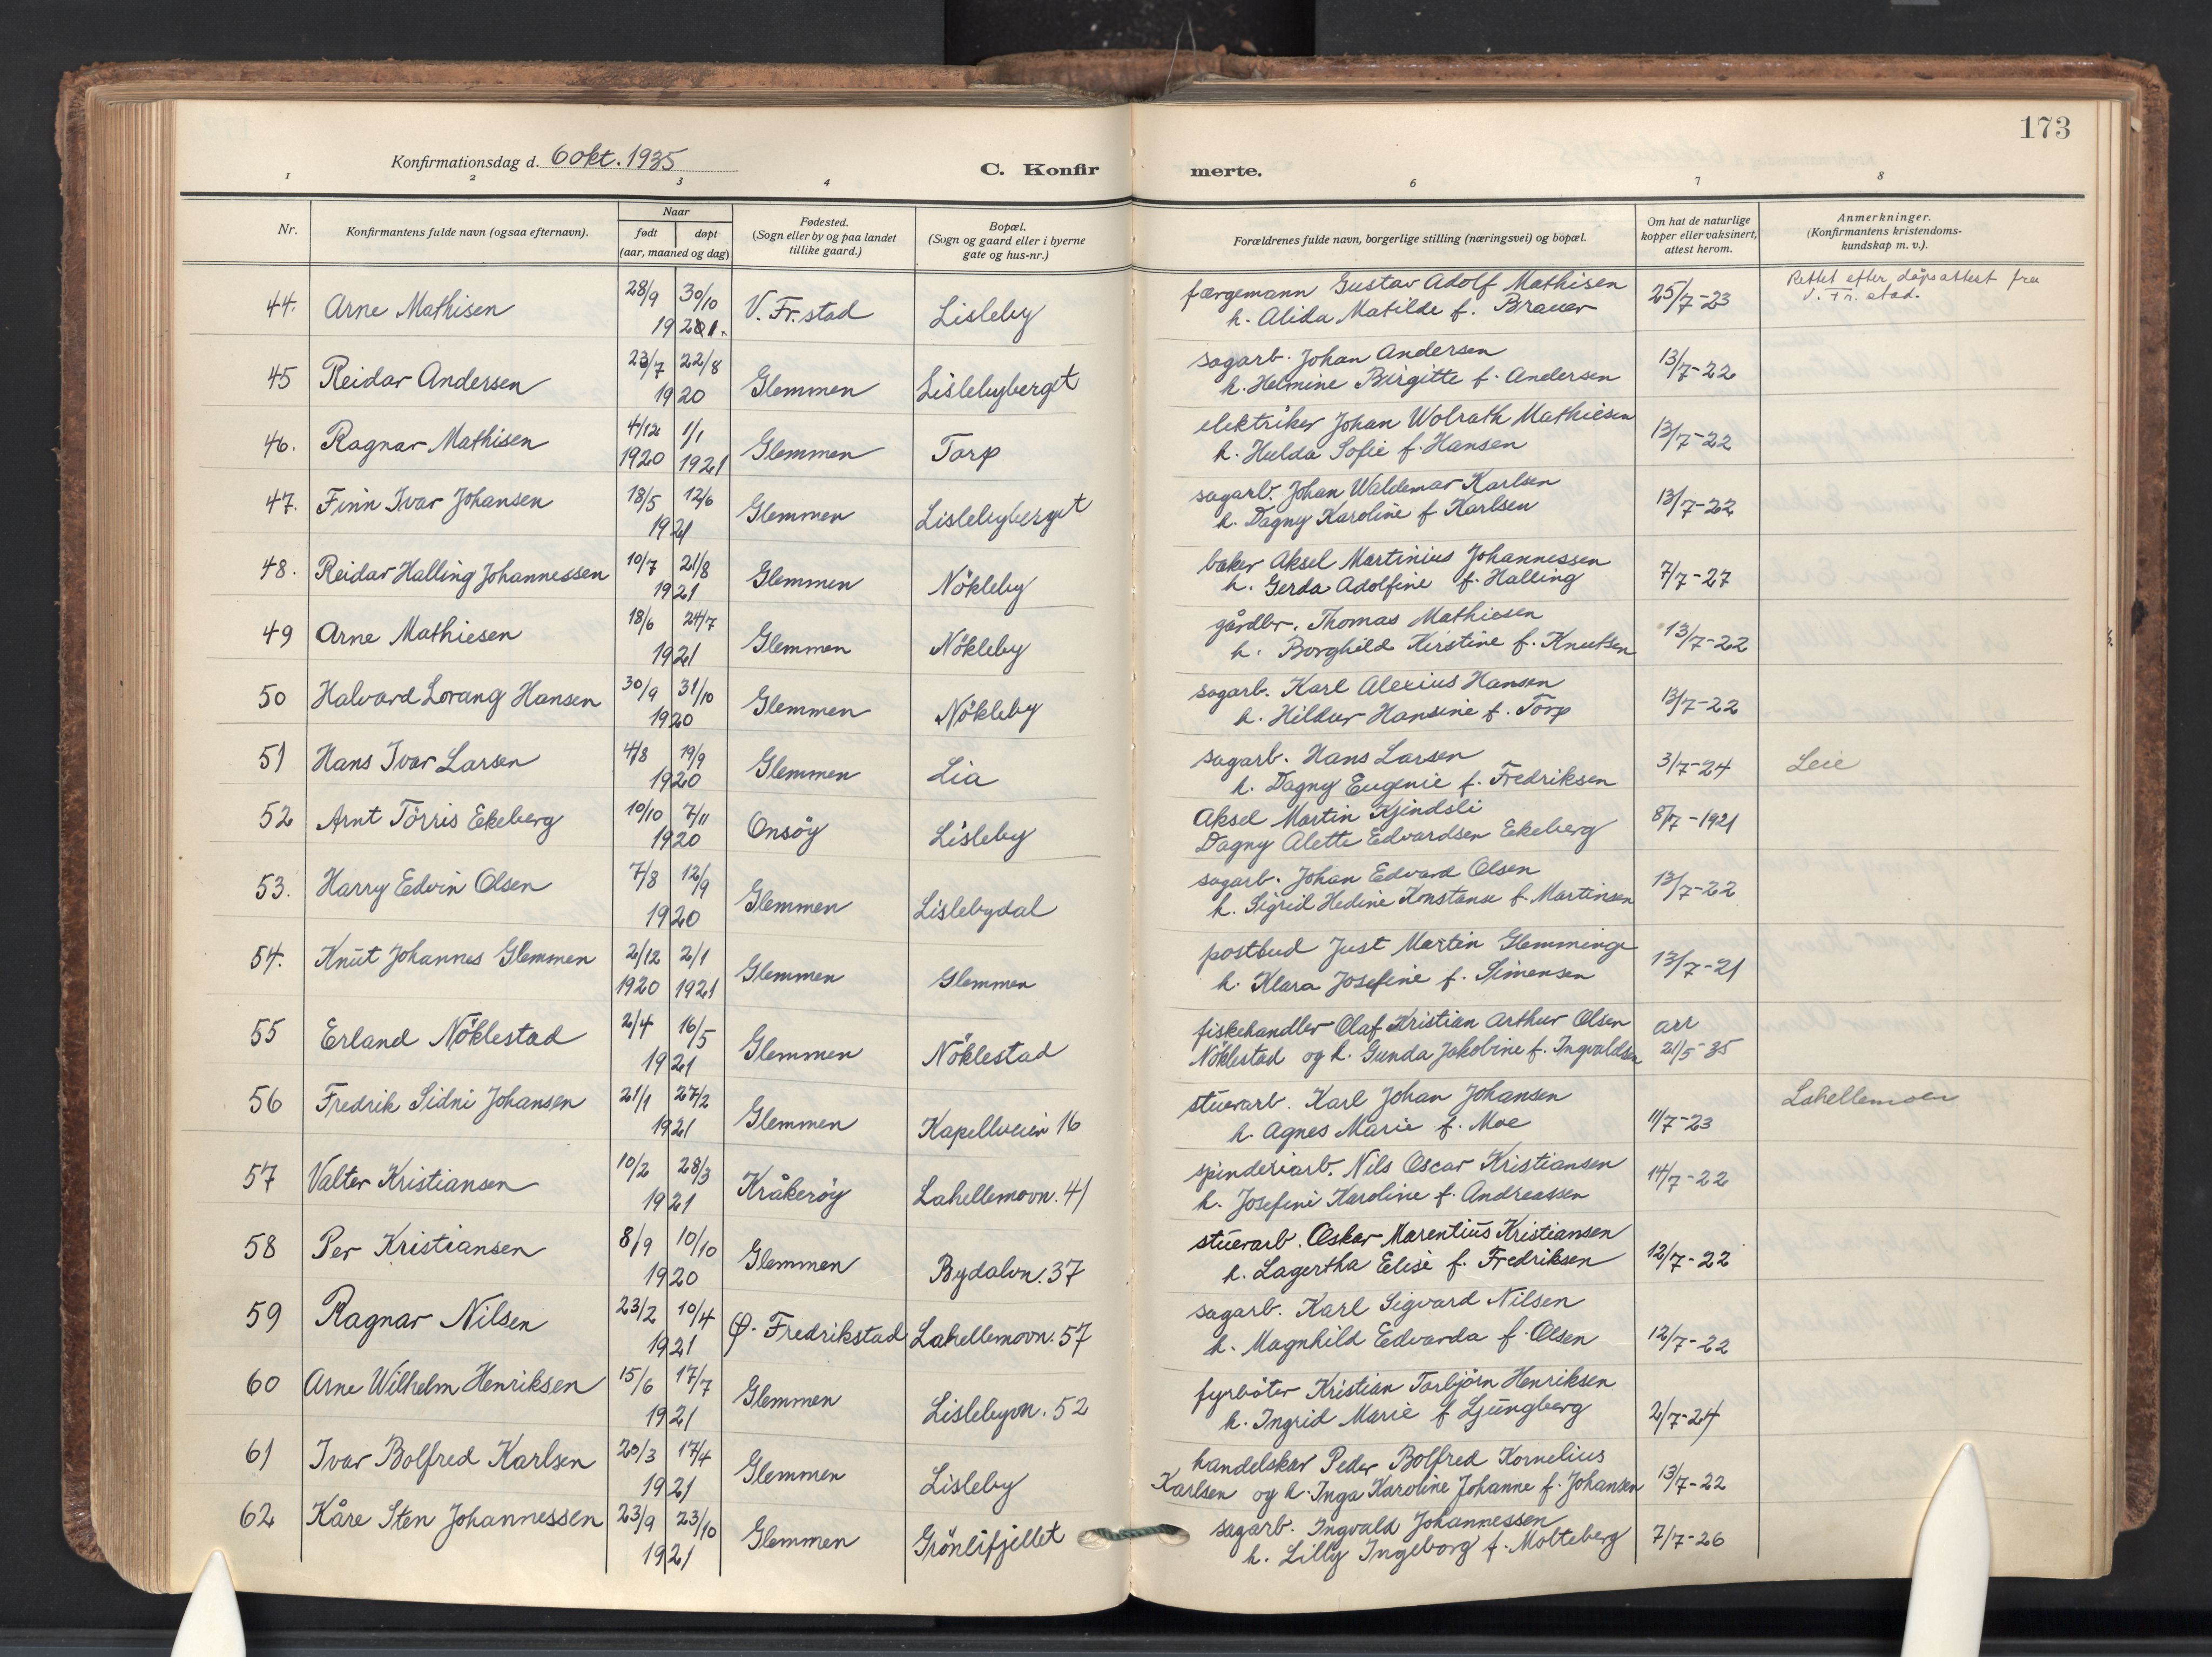 173
Konfirmationsdag d. 6 okt. 1935
C. Konfir merte.
1 2 3 4 6 7 8
Nr.
Konfirmantens fulde navn (ogsaa efternavn).
Naar
født døpt
(aar, maaned og dag)
Fødested.
(Sogn eller by og paa landet
tillike gaard.)
Bopæl.
(Sogn og gaard eller i byerne
gate og hus-nr.)
Forældrenes fulde navn, borgerlige stilling (næringsvei) og bopæl.
Om hat de naturlige
kopper eller vaksinert,
attest herom.
Anmerkninger.
(Konfirmantens kristendoms-
kundskap m. v.).
44. Arne Mathisen 28/9 30/10 V. Fr.stad Lisleby færgemann Gustav Adolf Mathisen 25/7-23 Rettet efter dåpsattest fra
1921. h. Alida Matilde f. Brauer V. Fr. stad.
45 Reidar Andersen 23/7 22/8 Glemmen Lislebyberget sagarb. Johan Andersen 13/7-22
1920 h. Helmine Birgitte f. Andersen
46. Ragnar Mathisen 4/12 1/1 Glemmen Torp elektriker Johan Wolrath Mathiesen 13/7-22
1920 1921 h. Hulda Sofie f. Hansen
47. Finn Ivar Johansen 18/5 12/6 Glemmen Lislebyberget sagarb. Johan Waldemar Karlsen 13/7-22
1921 h. Dagny Karoline f. Karlsen
48. Reidar Halling Johannessen 10/7 21/8 Glemmen Nökleby baker Aksel Martinius Johannessen 7/7-27
1921 h. Gerda Adolfine f. Halling
49 Arne Mathiesen 18/6 24/7 Glemmen Nökleby gårdbr. Thomas Mathiesen 13/7-22
1921 h. Borghild Kirstine f. Knutsen
50 Halvard Lorang Hansen 30/9 31/10 Glemmen Nökleby sagarb. Karl Alexius Hansen 13/7-22
1920 h. Hildur Hansine f. Torp
51 Hans Ivar Larsen 4/8 19/9 Glemmen Lia sagarb. Hans Larsen 3/7-24 Leie
1920 h. Dagny Eugenie f. Fredriksen
52 Arnt Törris Ekeberg 10/10 7/11 Onsöy Lisleby Aksel Martin Kjindsli 8/7-1921
1920 Dagny Alette Edvardsen Ekeberg
53. Harry Edvin Olsen 7/8 12/9 Glemmen Lislebydal sagarb. Johan Edvard Olsen 13/7-22
1920 h. Sigrid Hedine Konstanse f. Martinsen
54. Knut Johannes Glemmen 2/12 2/1 Glemmen Glemmen postbud Just Martin Glemminge 13/7-21
1920 1921 h. Klara Josefine f. Simensen
55 Erland Nöklestad 2/4 16/5 Glemmen Nöklestad fiskehandler Olaf Kristian Arthur Olsen arr
1921 Nöklestad og h. Gunda Jakobine f. Ingvaldsen 21/5-35
56 Fredrik Sidni Johansen 21/1 27/2 Glemmen Kapellveien 16 stuerarb. Karl Johan Johansen 11/7-23 Lahellemoen
1921 h. Agnes Marie f. Moe
57 Valter Kristiansen 10/2 28/3 Kråkeröy Lahellemovn. 41 spinderiarb. Nils Oscar Kristiansen 14/7-22
1921 h. Josefine Karoline f. Andreassen
58 Per Kristiansen 8/9 10/10 Glemmen Bydalvn. 37 stuerarb. Oskar Marentius Kristiansen 12/7-22
1920 h. Lagertha Elise f. Fredriksen
59 Ragnar Nilsen 23/2 10/4 Ø. Fredrikstad Lahellemovn. 57 sagarb. Karl Sigvard Nilsen 12/7-22
1921 h. Magnhild Edvarda f. Olsen
60 Arne Wilhelm Henriksen 15/6 17/7 Glemmen Lislebyvn. 52 fyrböter Kristian Torbjörn Henriksen 2/7-24
1921 h. Ingrid Marie f Ljungberg
61 Ivar Bolfred Karlsen 20/3 17/4 Glemmen Lisleby handelskar Peder Bolfred Kornelius 13/7-22
1921 Karlsen og h. Inga Karoline Johanne f. Johansen
62 Kåre Sten Johannessen 23/9 23/10 Glemmen Grönlifjellet sagarb. Ingvald Johannessen 7/7-26
1921 h. Lilly Ingeborg f. Molteberg